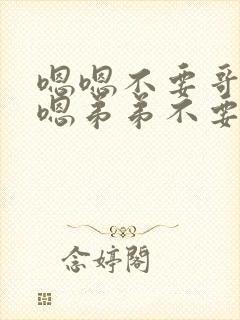 嗯嗯不要哥
嗯弟弟不要
念婷閣